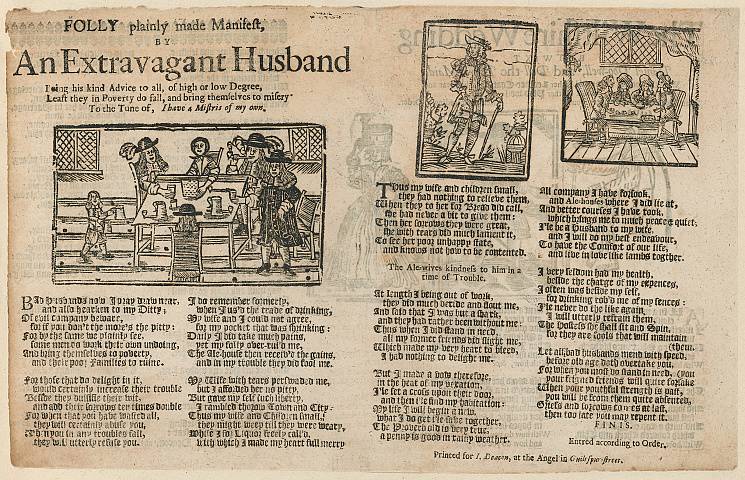 FOLLY plainly made Manifest,
BY
An Extravagant Husband
Being his kind Advice to all, of high or low Degree,
Least they in Poverty do fall, and bring themselves to misery
To the Tune of, I have a Mistris of my own.
Bad Husbands now I pray draw near,
and also hearken to my Ditty;
Of evil Company beware,
for if you don't the more's the pitty:
For by the same we plainly see,
some men do work their own undoing,
And bring themselves to poverty,
and their poor Families to ruine.
For those that do delight in it,
would certainly increase their trouble
Besides they dullifie their wit,
and add their sorrows ten times double
For when that you have wasted all,
they will certainly abuse you,
When you in any troubles fall,
they will utterly refuse you.
I do remember formerly,
when I us'd the trade of drinking,
My wife and I could not agree,
for my pocket that was shrinking:
Daily I did take much pains,
yet my folly over-rul'd me,
The Ale-house then receiv'd the gains,
and in my trouble they did fool me.
My Wife with tears perswaded me,
but I afforded her no pitty,
But gave my self such liberty,
I rambled thorow Town and City:
Though my wife and Children small,
they might weep till they were weary,
While I for Liquor freely call'd,
with which I made my heart full merry
Thus my wife and children small,
they had nothing to relieve them,
When they to her for Bread did call,
she had never a bit to give them:
Then her sorrows they were great,
she with tears did much lament it,
To see her poor unhappy state,
and knows not how to be contented.
The Ale-wives kindness to him in a
time of Trouble.
At length I being out of work,
they did much deride and flout me,
And said that I was but a shark,
and they had rather been without me:
Thus when I did stand in need,
all my former friends did slight me,
Which made my very heart to bleed,
I had nothing to delight me.
But I made a vow therefore,
in the heat of my vexation,
I'le set a cross upon their door,
and then I'le find my habitation:
My life I will begin a new,
what I do get I'le save together,
The Proverb old is very true,
a penny is good in rainy weather.
All company I have forsook,
and Ale-houses where I did lie at,
And better courses I have took,
which brings me to much peace & quiet;
I'le be a Husband to my wife
and I will do my best endeavour,
To have the Comfort of our life,
and live in love like lambs together.
I very seldom had my health,
beside the charge of my expences,
I often was beside my self,
for drinking rob'd me of my sences:
I'le never do the like again,
I will utterly refrain them,
The Hostess she shall sit and Spin,
for they are fools that will maintain
(them.
Let all bad husbands mend with speed,
before old age doth overtake you,
For when you most do stand in need, (you
your friend and friends will quite forsake
When your youthful strength is past,
you will be from them quite absented,
Griefs and sorrows comes at last,
then too late you may repent it.
FINIS.
Entred according to Order.
Printed for I. Deacon, at the Angel in Guiltspur-street.